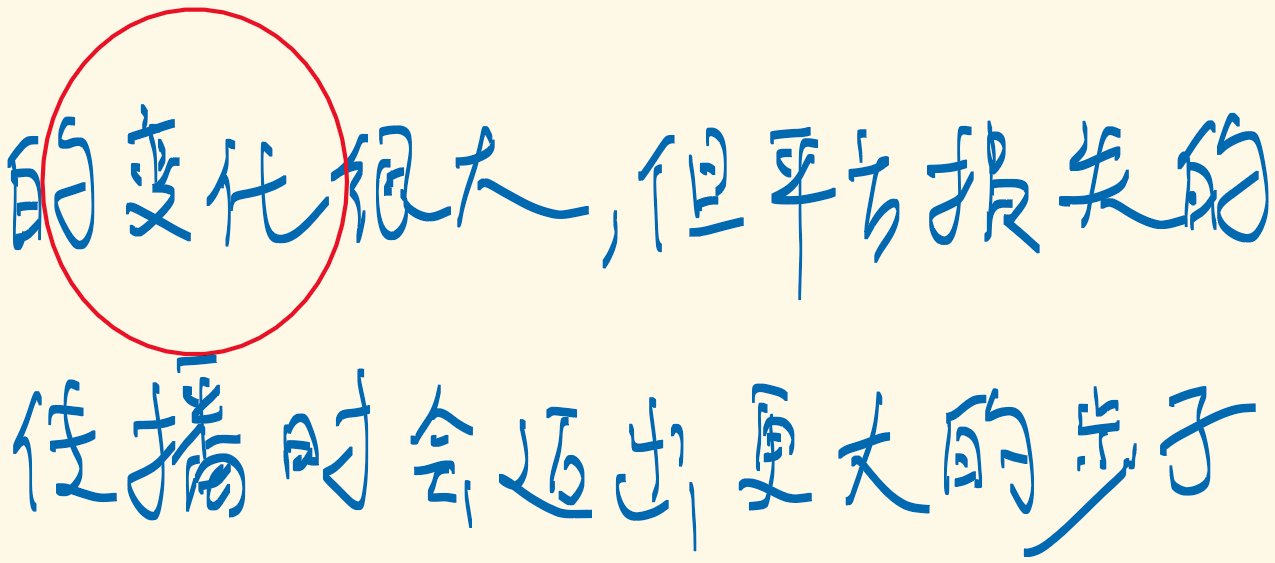 的变化很大,但平亏损失的
任播时会迈出更大的步子